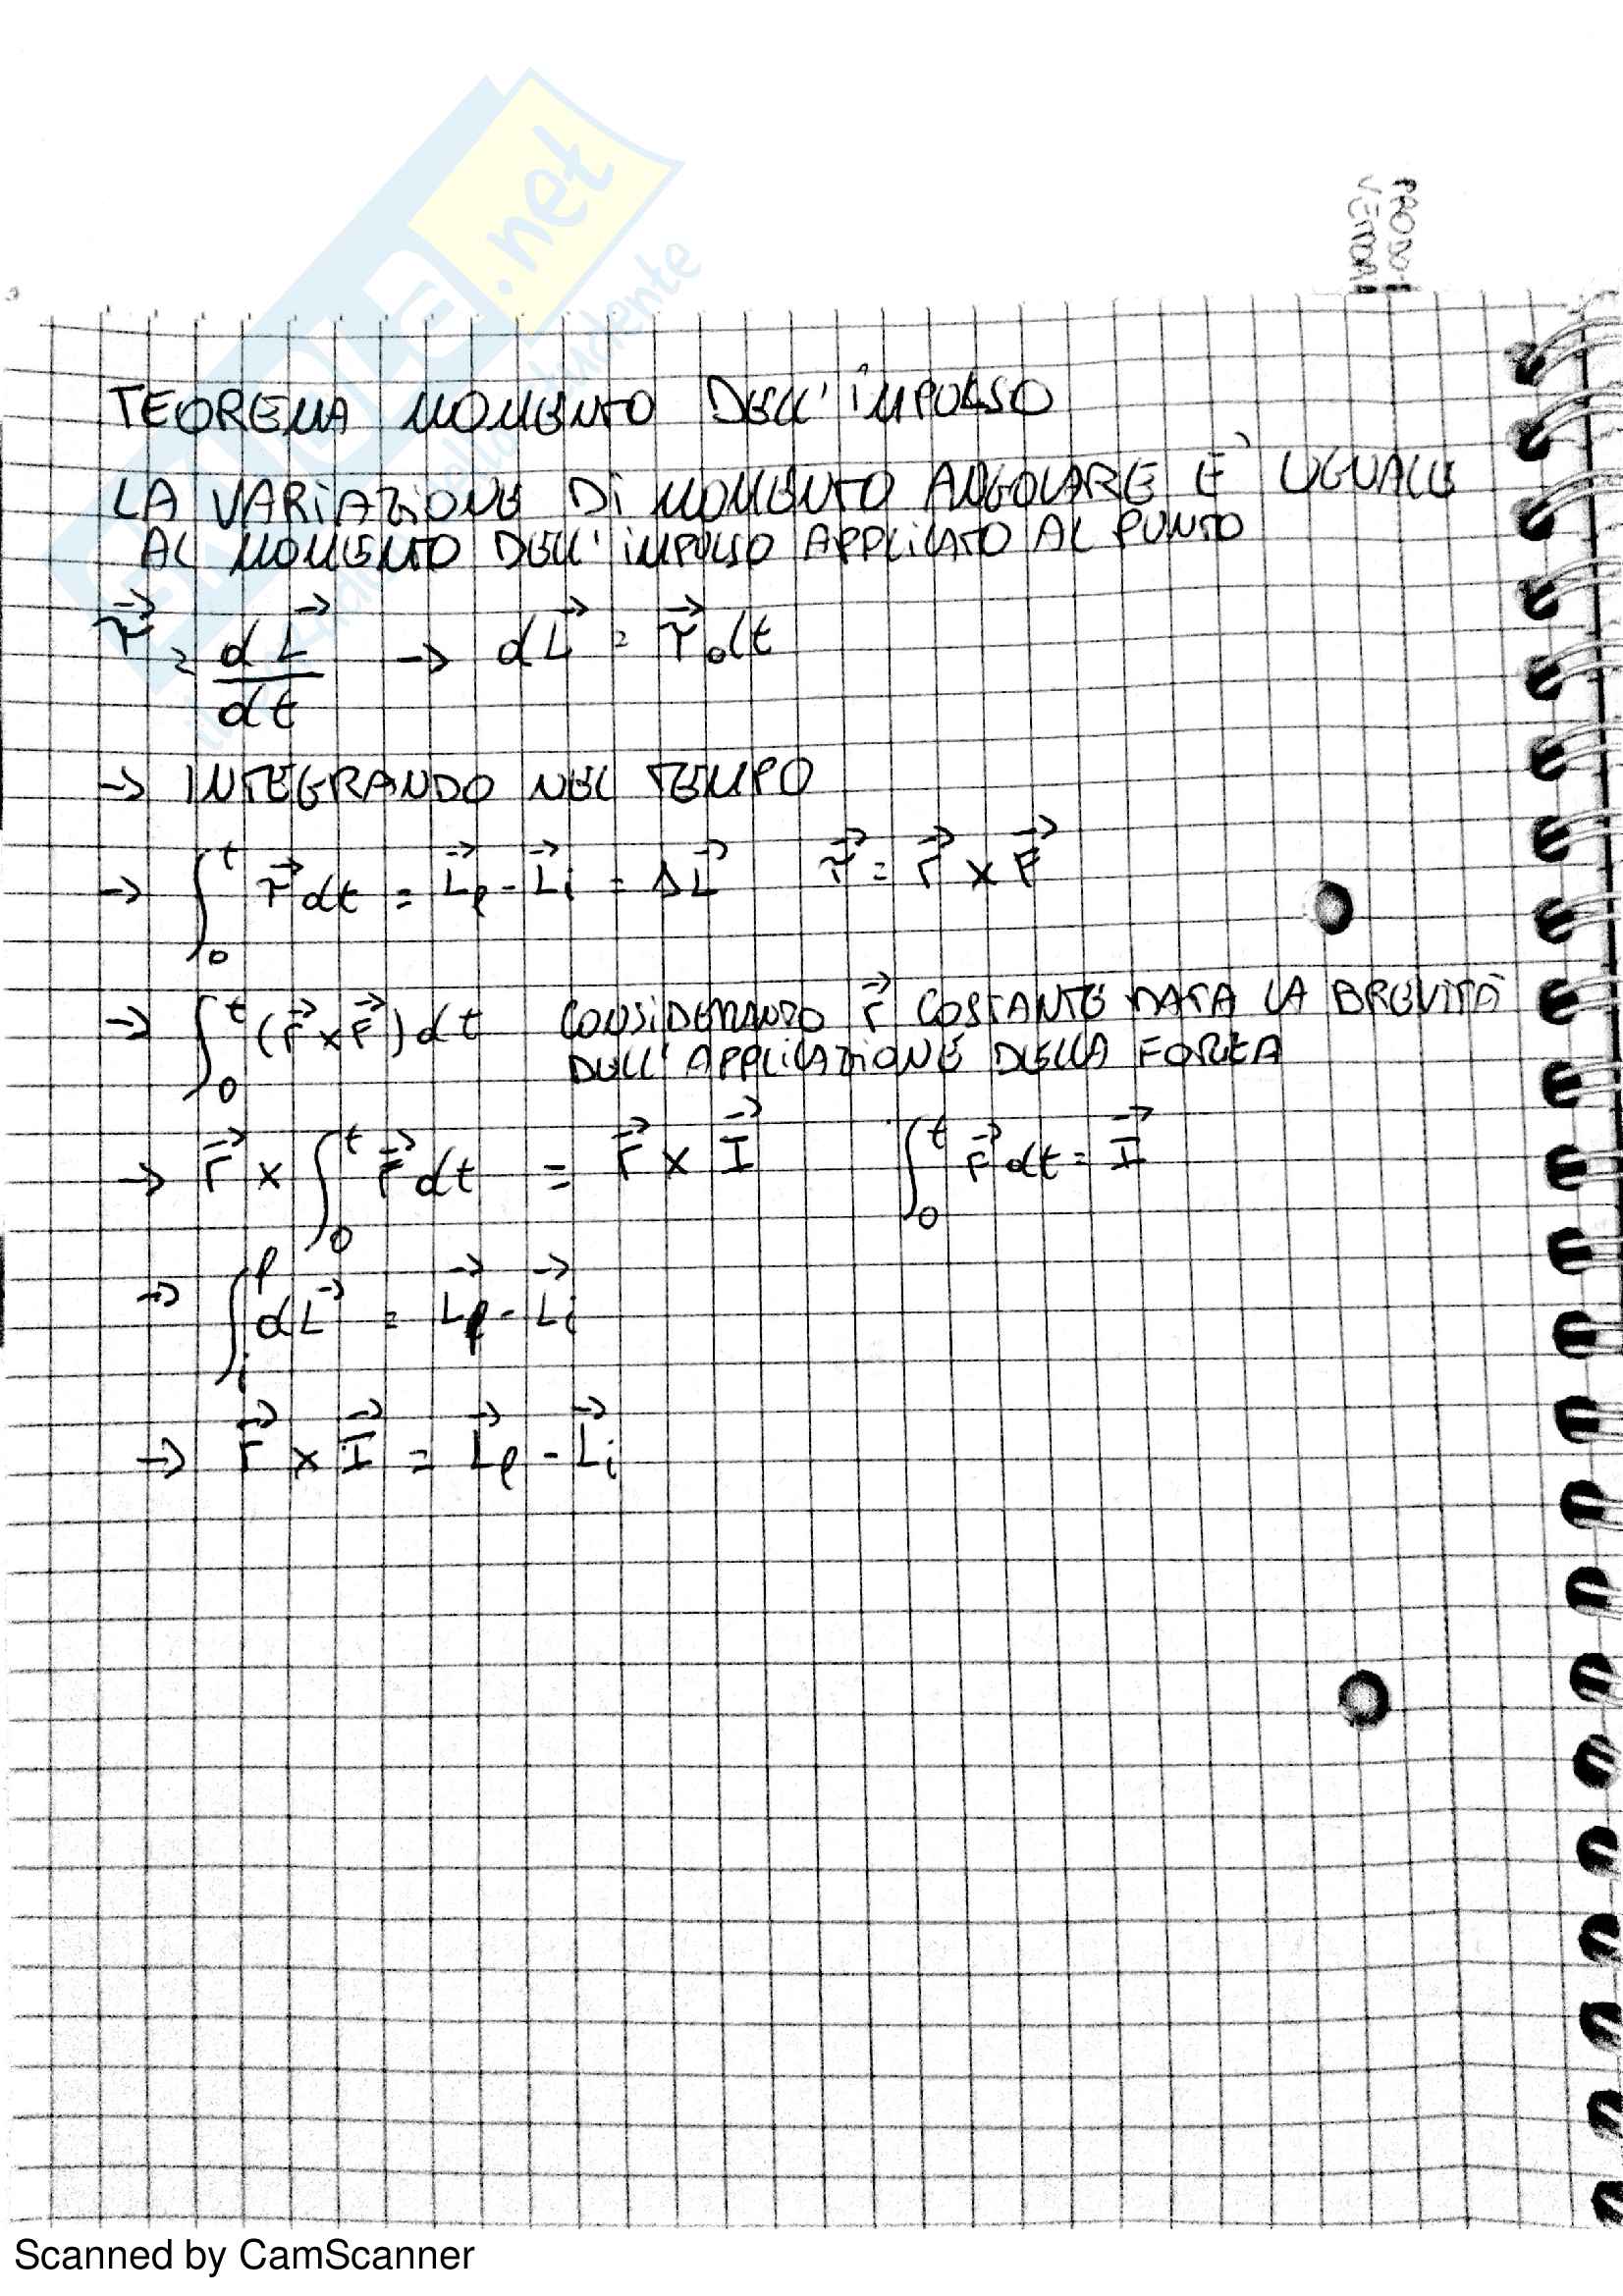 PRODO
VETTORI
.net
TEOREMA MOMENTO DELL'IMPULSO
LA VARIAZIONE DI MOMENTO ANGOLARE E' UGUALE
AL MOMENTO DELL'IMPULSO APPLICATO AL PUNTO
τ⃗ = dL⃗/dt → dL⃗ = τ⃗ dt
→ INTEGRANDO NEL TEMPO
→ ∫₀ᵗ τ⃗ dt = L⃗f - L⃗i = ΔL⃗ τ⃗ = r⃗ × F⃗
→ ∫₀ᵗ (r⃗ × F⃗) dt CONSIDERANDO r⃗ COSTANTE DATA LA BREVITÀ
DELL'APPLICAZIONE DELLA FORZA
→ r⃗ × ∫₀ᵗ F⃗ dt = r⃗ × I⃗ ∫₀ᵗ F⃗ dt = I⃗
→ ∫ᵢᶠ dL⃗ = L⃗f - L⃗i
→ r⃗ × I⃗ = L⃗f - L⃗i
Scanned by CamScanner